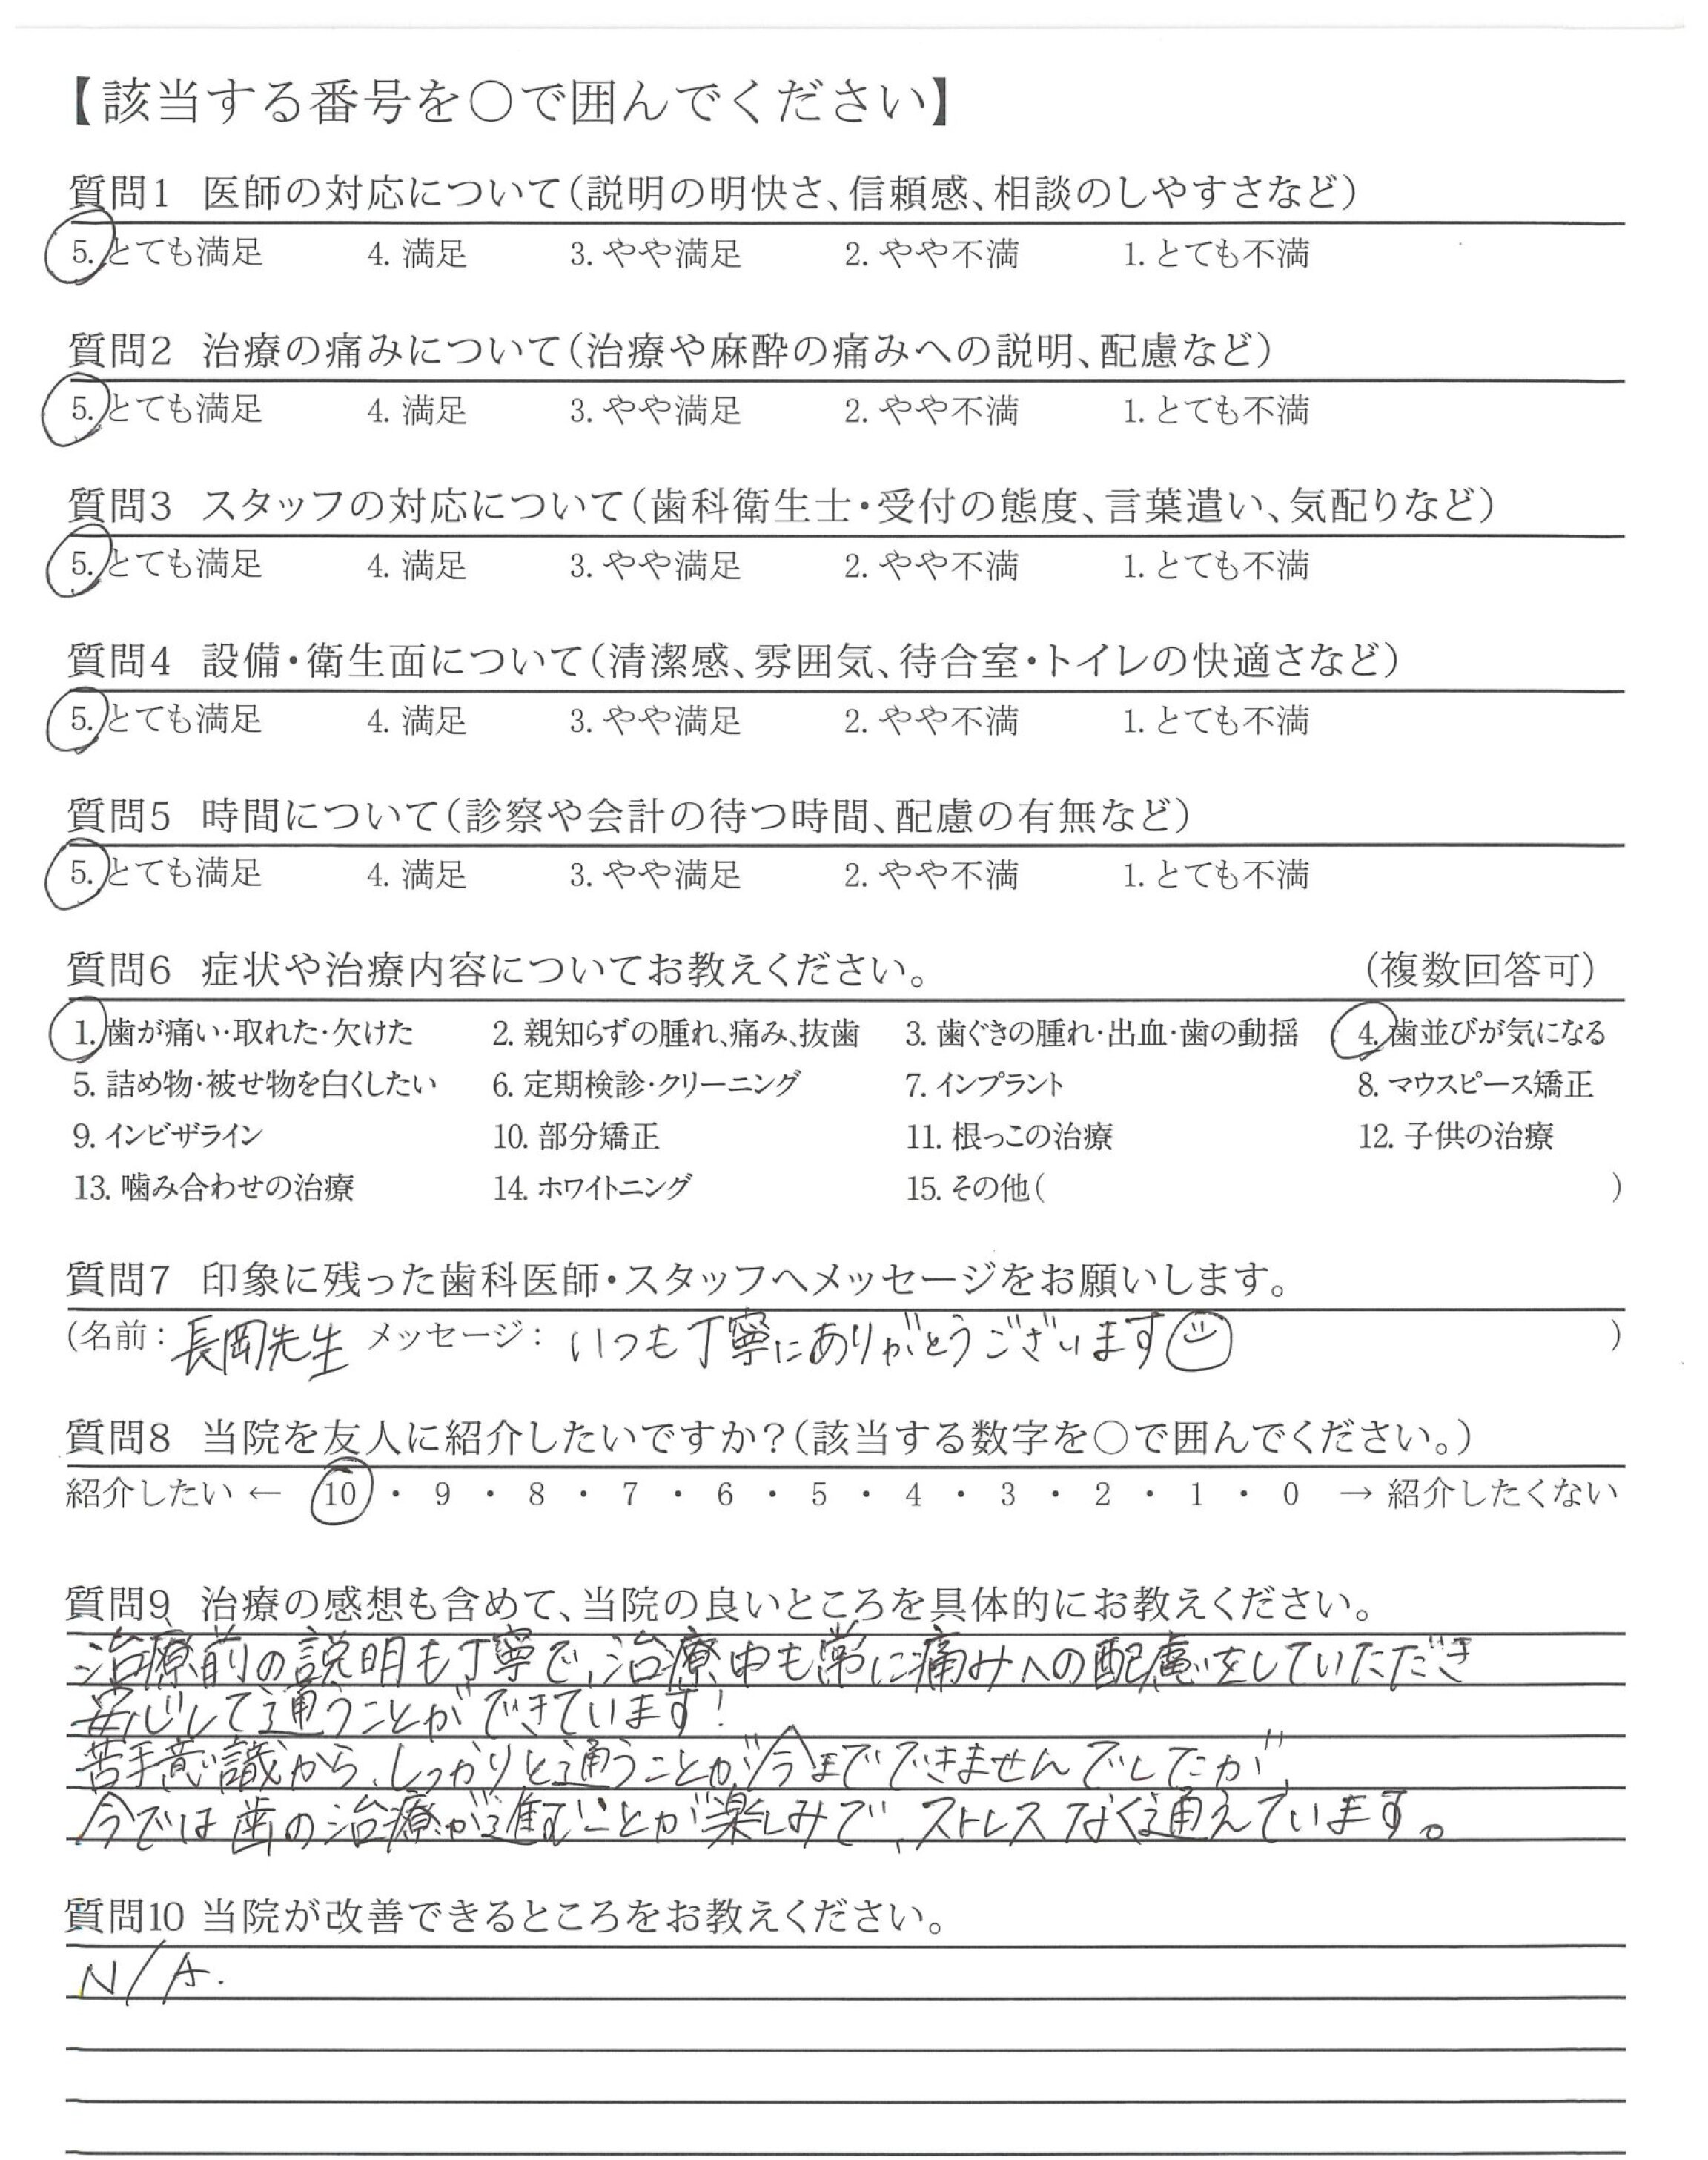 【該当する番号を○で囲んでください】
質問1 医師の対応について(説明の明快さ、信頼感、相談のしやすさなど)
5. とても満足 4. 満足 3. やや満足 2. やや不満 1. とても不満
質問2 治療の痛みについて(治療や麻酔の痛みへの説明、配慮など)
5. とても満足 4. 満足 3. やや満足 2. やや不満 1. とても不満
質問3 スタッフの対応について(歯科衛生士・受付の態度、言葉遣い、気配りなど)
5. とても満足 4. 満足 3. やや満足 2. やや不満 1. とても不満
質問4 設備・衛生面について(清潔感、雰囲気、待合室・トイレの快適さなど)
5. とても満足 4. 満足 3. やや満足 2. やや不満 1. とても不満
質問5 時間について(診察や会計の待つ時間、配慮の有無など)
5. とても満足 4. 満足 3. やや満足 2. やや不満 1. とても不満
質問6 症状や治療内容についてお教えください。 (複数回答可)
1. 歯が痛い・取れた・欠けた 2. 親知らずの腫れ、痛み、抜歯 3. 歯ぐきの腫れ・出血・歯の動揺 4. 歯並びが気になる
5. 詰め物・被せ物を白くしたい 6. 定期検診・クリーニング 7. インプラント 8. マウスピース矯正
9. インビザライン 10. 部分矯正 11. 根っこの治療 12. 子供の治療
13. 噛み合わせの治療 14. ホワイトニング 15. その他( )
質問7 印象に残った歯科医師・スタッフへメッセージをお願いします。
(名前: 長岡先生 メッセージ: いつも丁寧にありがとうございます )
質問8 当院を友人に紹介したいですか?(該当する数字を○で囲んでください。)
紹介したい ← 10 ・ 9 ・ 8 ・ 7 ・ 6 ・ 5 ・ 4 ・ 3 ・ 2 ・ 1 ・ 0 → 紹介したくない
質問9 治療の感想も含めて、当院の良いところを具体的にお教えください。
治療前の説明も丁寧で、治療中も常に痛みへの配慮をしていただき
安心して通うことができています!
苦手意識から、しっかりと通うことが今までできませんでしたが、
今では歯の治療が進むことが楽しみで、ストレスなく通えています。
質問10 当院が改善できるところをお教えください。
N/A.